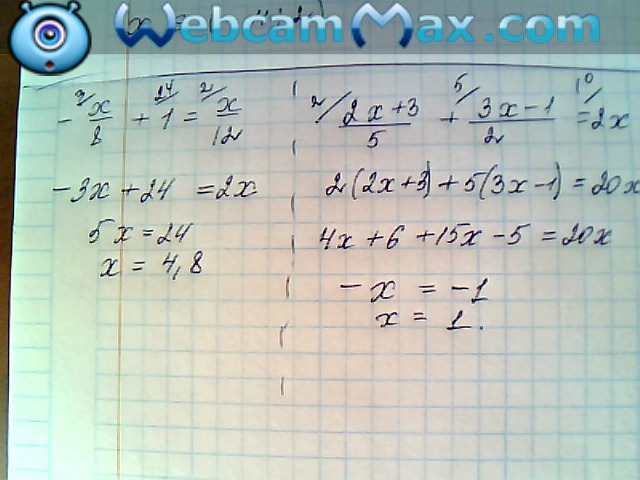 WebcamMax.com
x =
-3/ x/8 + 24/ 1 = 2/ x/12
-3x + 24 = 2x
5x = 24
x = 4,8
2/ (2x+3)/5 + 5/ (3x-1)/2 = 10/ 2x
2(2x+3)+5(3x-1)=20x
4x+6+15x-5=20x
-x = -1
x = 1.